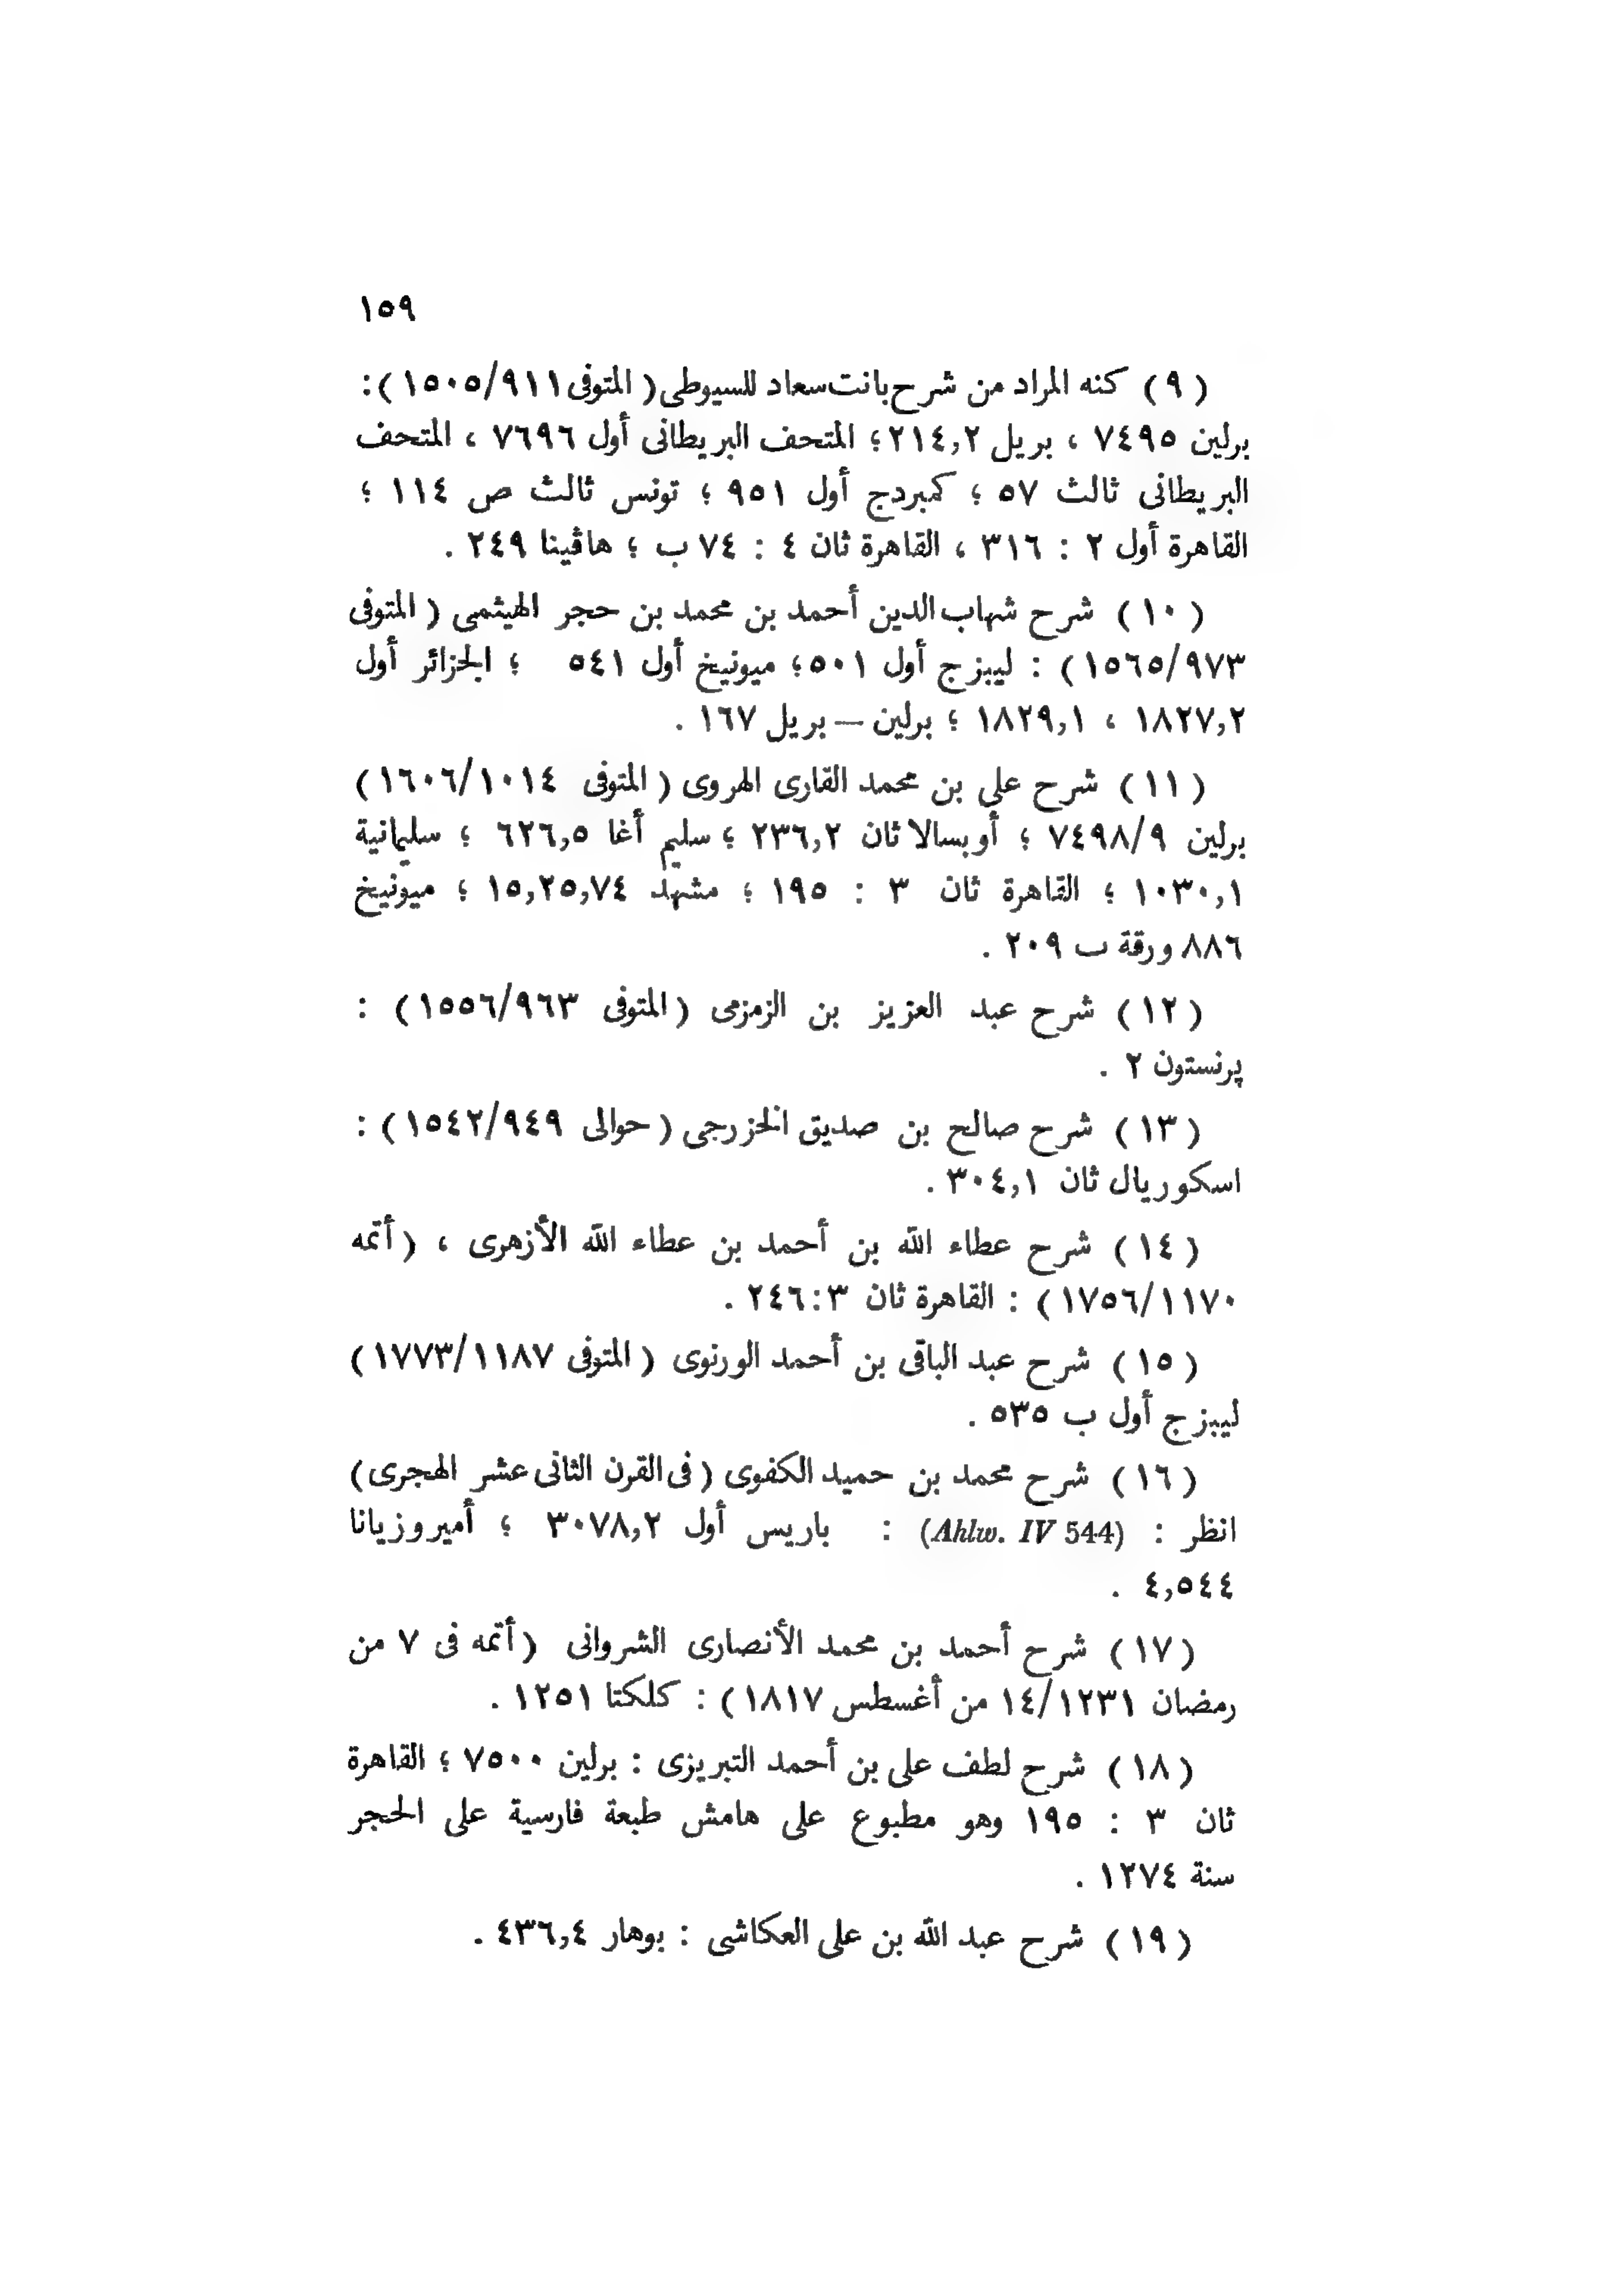 ١٥٩
( ٩ ) كنه المراد من شرح بانت سعاد للسيوطى ( المتوفى ١٥٠٥/٩١١ ) :
برلين ٧٤٩٥ ، بريل ٢١٤,٢ ؛ المتحف البريطانى أول ٧٦٩٦ ، المتحف
البريطانى ثالث ٥٧ ؛ كمبردج أول ٩٥١ ؛ تونس ثالث ص ١١٤ ؛
القاهرة أول ٢ : ٣١٦ ، القاهرة ثان ٤ : ٧٤ ب ؛ هاڤينا ٢٤٩ .
( ١٠ ) شرح شهاب الدين أحمد بن محمد بن حجر الهيثمى ( المتوفى
١٥٦٥/٩٧٣ ) : ليبزج أول ٥٠١ ؛ ميونيخ أول ٥٤١ ؛ الجزائر أول
١٨٢٧,٢ ، ١٨٢٩,١ ؛ برلين — بريل ١٦٧ .
( ١١ ) شرح على بن محمد القارى الهروى ( المتوفى ١٦٠٦/١٠١٤ )
برلين ٧٤٩٨/٩ ؛ أوبسالا ثان ٢٣٦,٢ ؛ سليم أغا ٦٢٦,٥ ؛ سليمانية
١٠٣٠,١ ؛ القاهرة ثان ٣ : ١٩٥ ؛ مشهد ١٥,٢٥,٧٤ ؛ ميونيخ
٨٨٦ ورقة ب ٢٠٩ .
( ١٢ ) شرح عبد العزيز بن الزمزمى ( المتوفى ١٥٥٦/٩٦٣ ) :
پرنستون ٢ .
( ١٣ ) شرح صالح بن صديق الخزرجى ( حوالى ١٥٤٢/٩٤٩ ) :
اسكوريال ثان ٣٠٤,١ .
( ١٤ ) شرح عطاء الله بن أحمد بن عطاء الله الأزهرى ، ( أتمه
١٧٥٦/١١٧٠ ) : القاهرة ثان ٣ : ٢٤٦ .
( ١٥ ) شرح عبد الباقى بن أحمد الورنوى ( المتوفى ١٧٧٣/١١٨٧ )
ليبزج أول ب ٥٣٥ .
( ١٦ ) شرح محمد بن حميد الكفوى ( فى القرن الثانى عشر الهجرى )
انظر : (Ahlw. IV 544) : باريس أول ٣٠٧٨,٢ ؛ أمبروزيانا
٤,٥٤٤ .
( ١٧ ) شرح أحمد بن محمد الأنصارى الشروانى ( أتمه فى ٧ من
رمضان ١٤/١٢٣١ من أغسطس ١٨١٧ ) : كلكتا ١٢٥١ .
( ١٨ ) شرح لطف على بن أحمد التبريزى : برلين ٧٥٠٠ ؛ القاهرة
ثان ٣ : ١٩٥ وهو مطبوع على هامش طبعة فارسية على الحجر
سنة ١٢٧٤ .
( ١٩ ) شرح عبد الله بن على العكاشى : بوهار ٤٣٦,٤ .